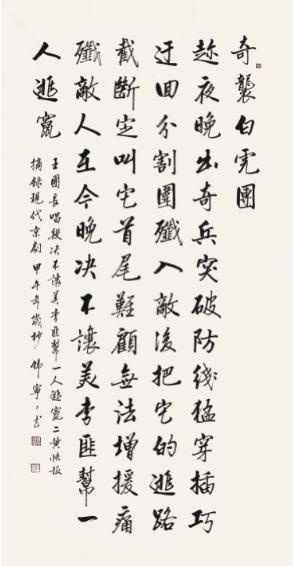 奇襲白虎團
趁夜晚出奇兵突破防线猛穿插巧
迂回分割圍殲入敵後把它的逃路
截斷定叫它首尾難顧無法增援痛
殲敵人在今晚决不讓美李匪幫一
人逃竄
王團長唱段决不讓美李匪幫一人逃竄二黄快板
摘錄現代京劇 甲午年歲抄